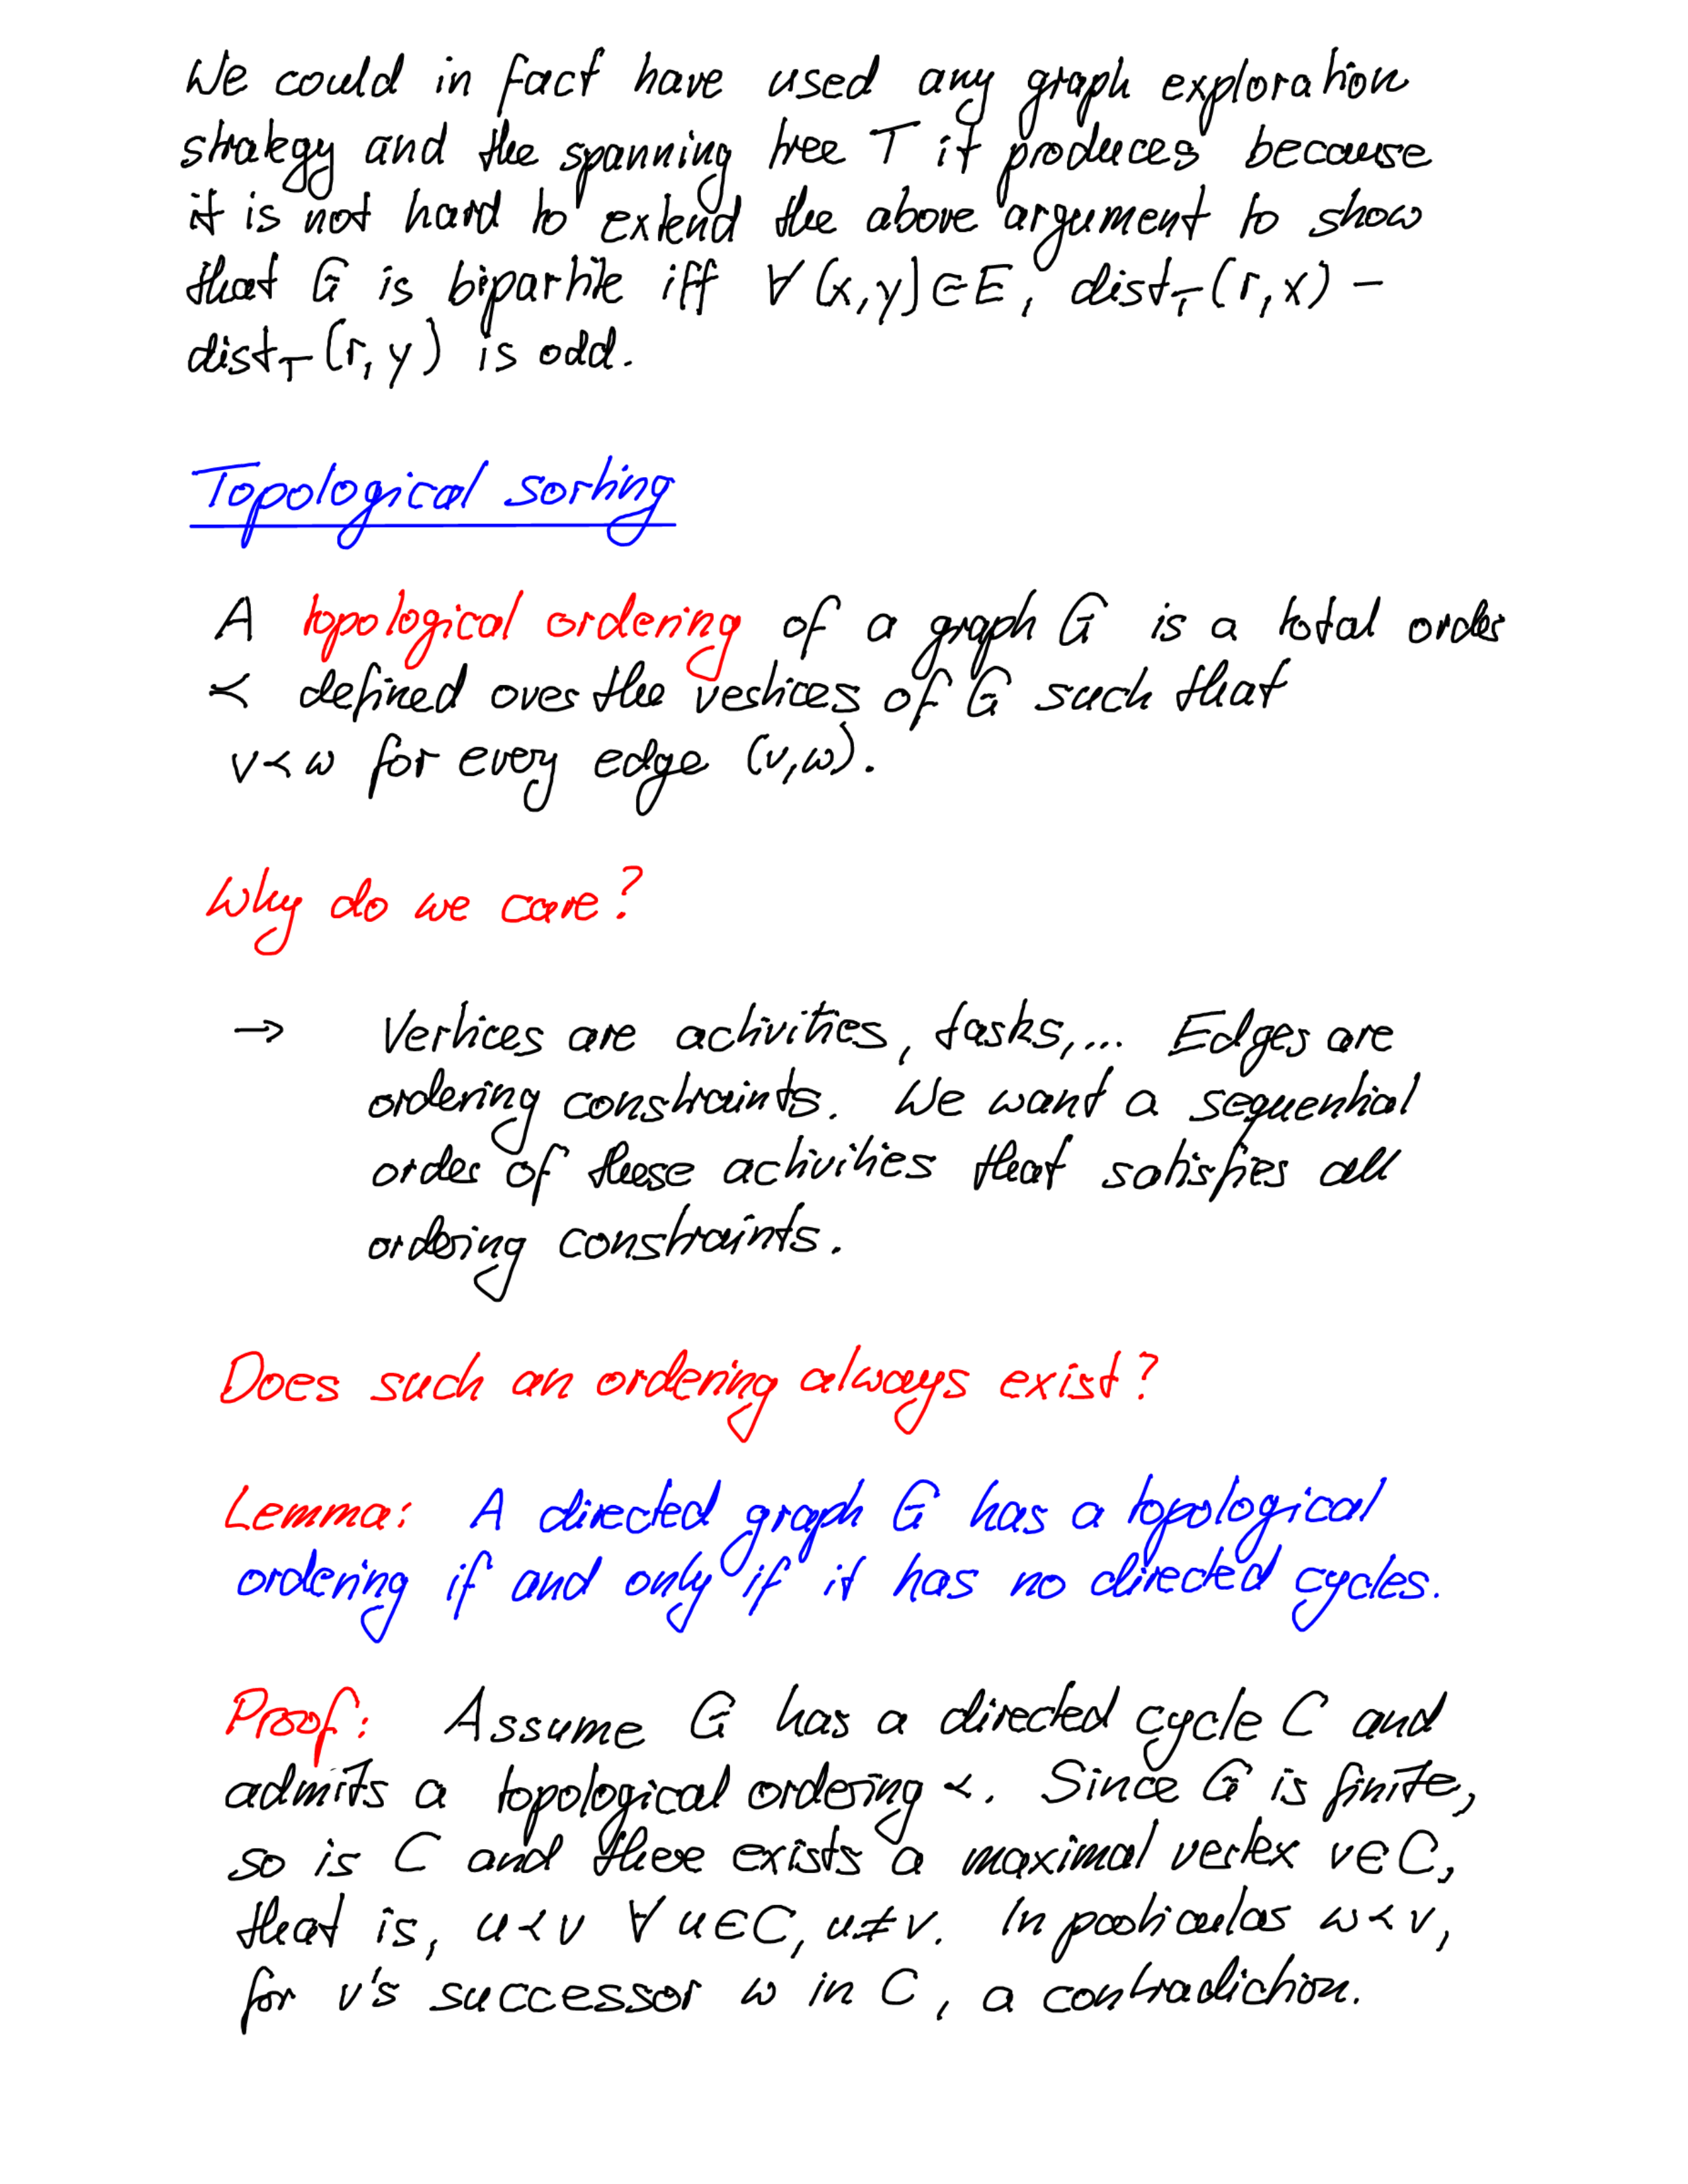 We could in fact have used any graph exploration
strategy and the spanning tree T it produces because
it is not hard to extend the above argument to show
that G is bipartite iff ∀ (x,y) ∈ E, dist_T (r,x) −
dist_T (r,y) is odd.
Topological sorting
A topological ordering of a graph G is a total order
≺ defined over the vertices of G such that
v ≺ w for every edge (v,w).
Why do we care?
→ Vertices are activities, tasks,... Edges are
ordering constraints. We want a sequential
order of these activities that satisfies all
ordering constraints.
Does such an ordering always exist?
Lemma: A directed graph G has a topological
ordering if and only if it has no directed cycles.
Proof: Assume G has a directed cycle C and
admits a topological ordering ≺. Since G is finite,
so is C and there exists a maximal vertex v∈C,
that is, u ≺ v ∀ u∈C, u≠v. In particular w ≺ v,
for v's successor w in C, a contradiction.